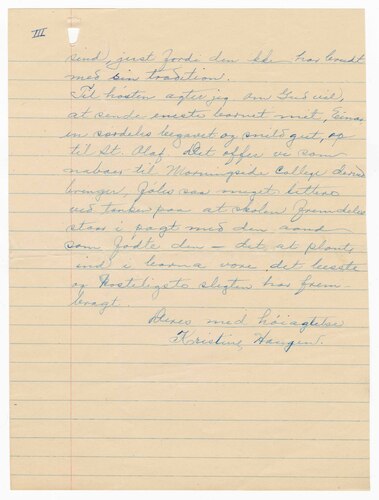 III
sind, just fordi den ikke har brudt
med sin tradition.
Til høsten agter jeg om Gud vil,
at sende eneste barnet mit, Einar
en særdeles begavet og snild gut, op
til St. Olaf. Det offer vi som
naboer til Morningside College derved
bringer, føles saa meget lettere
ved tanken paa at skolen fremdeles
staar i pagt med den aand
som fødte den — det at plante
ind i barna vore det beste
og kosteligste slegten har frem-
bragt.
Deres med høiagtelse
Kristine Haugen.